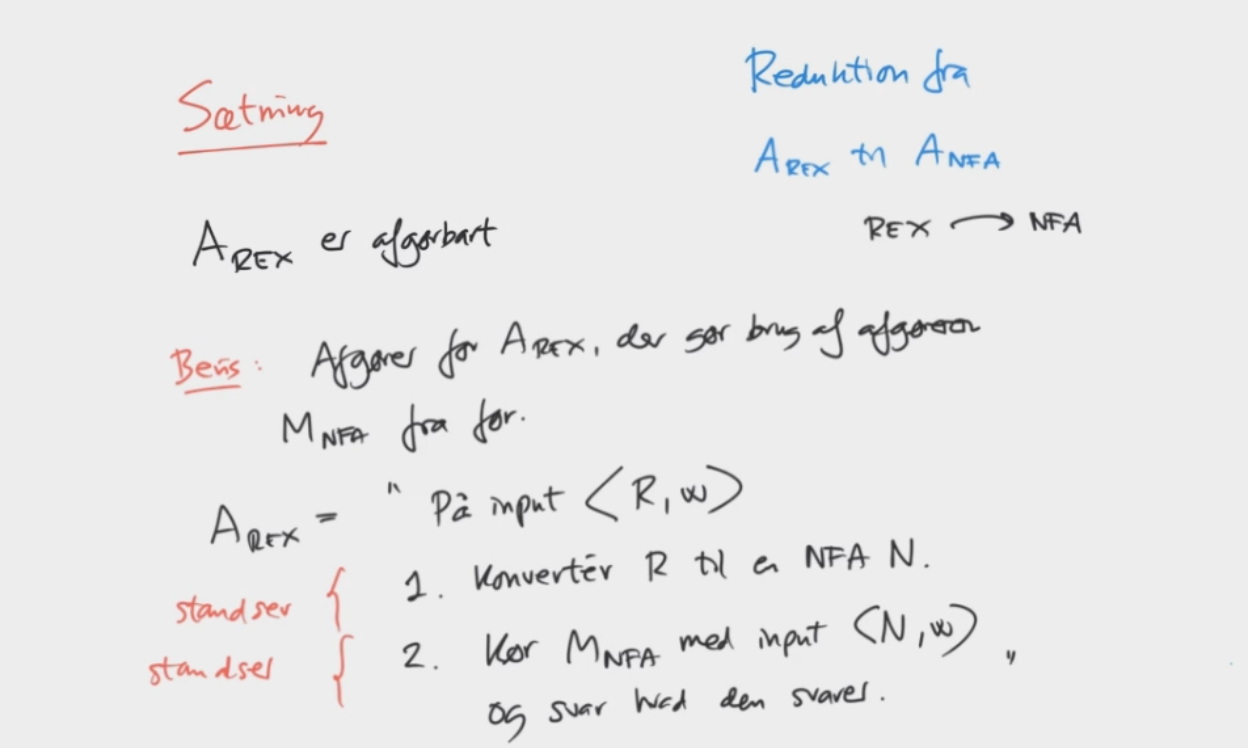 Sætning
Reduktion fra
A_REX til A_NFA
REX → NFA
A_REX er afgørbart
Bevis: Afgører for A_REX, der gør brug af afgøreren
M_NFA fra før.
A_REX = " På input ⟨R, w⟩
standser { 1. Konvertér R til en NFA N.
standser { 2. Kør M_NFA med input ⟨N, w⟩ "
og svar hvad den svarer.